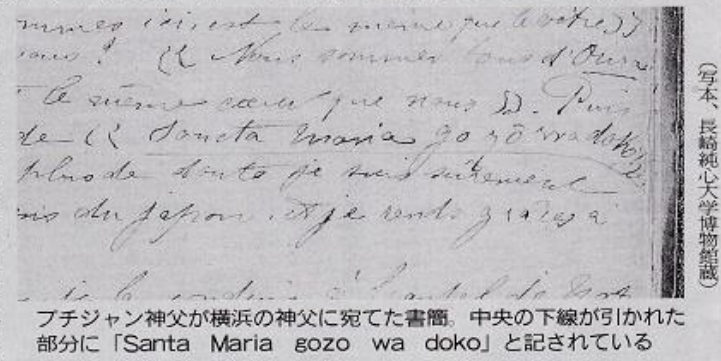 sommes ici, est le même que le vôtre »
vous ? « Nous sommes tous d'Oura
le même cœur que nous ». Puis
de « Sancta Maria go zō wa doko
plus de doute je suis sûrement
du Japon. et je rends grâces à
de le conduire à l'autel de
(写本、長崎純心大学博物館蔵)
プチジャン神父が横浜の神父に宛てた書簡。中央の下線が引かれた
部分に「Santa Maria gozo wa doko」と記されている